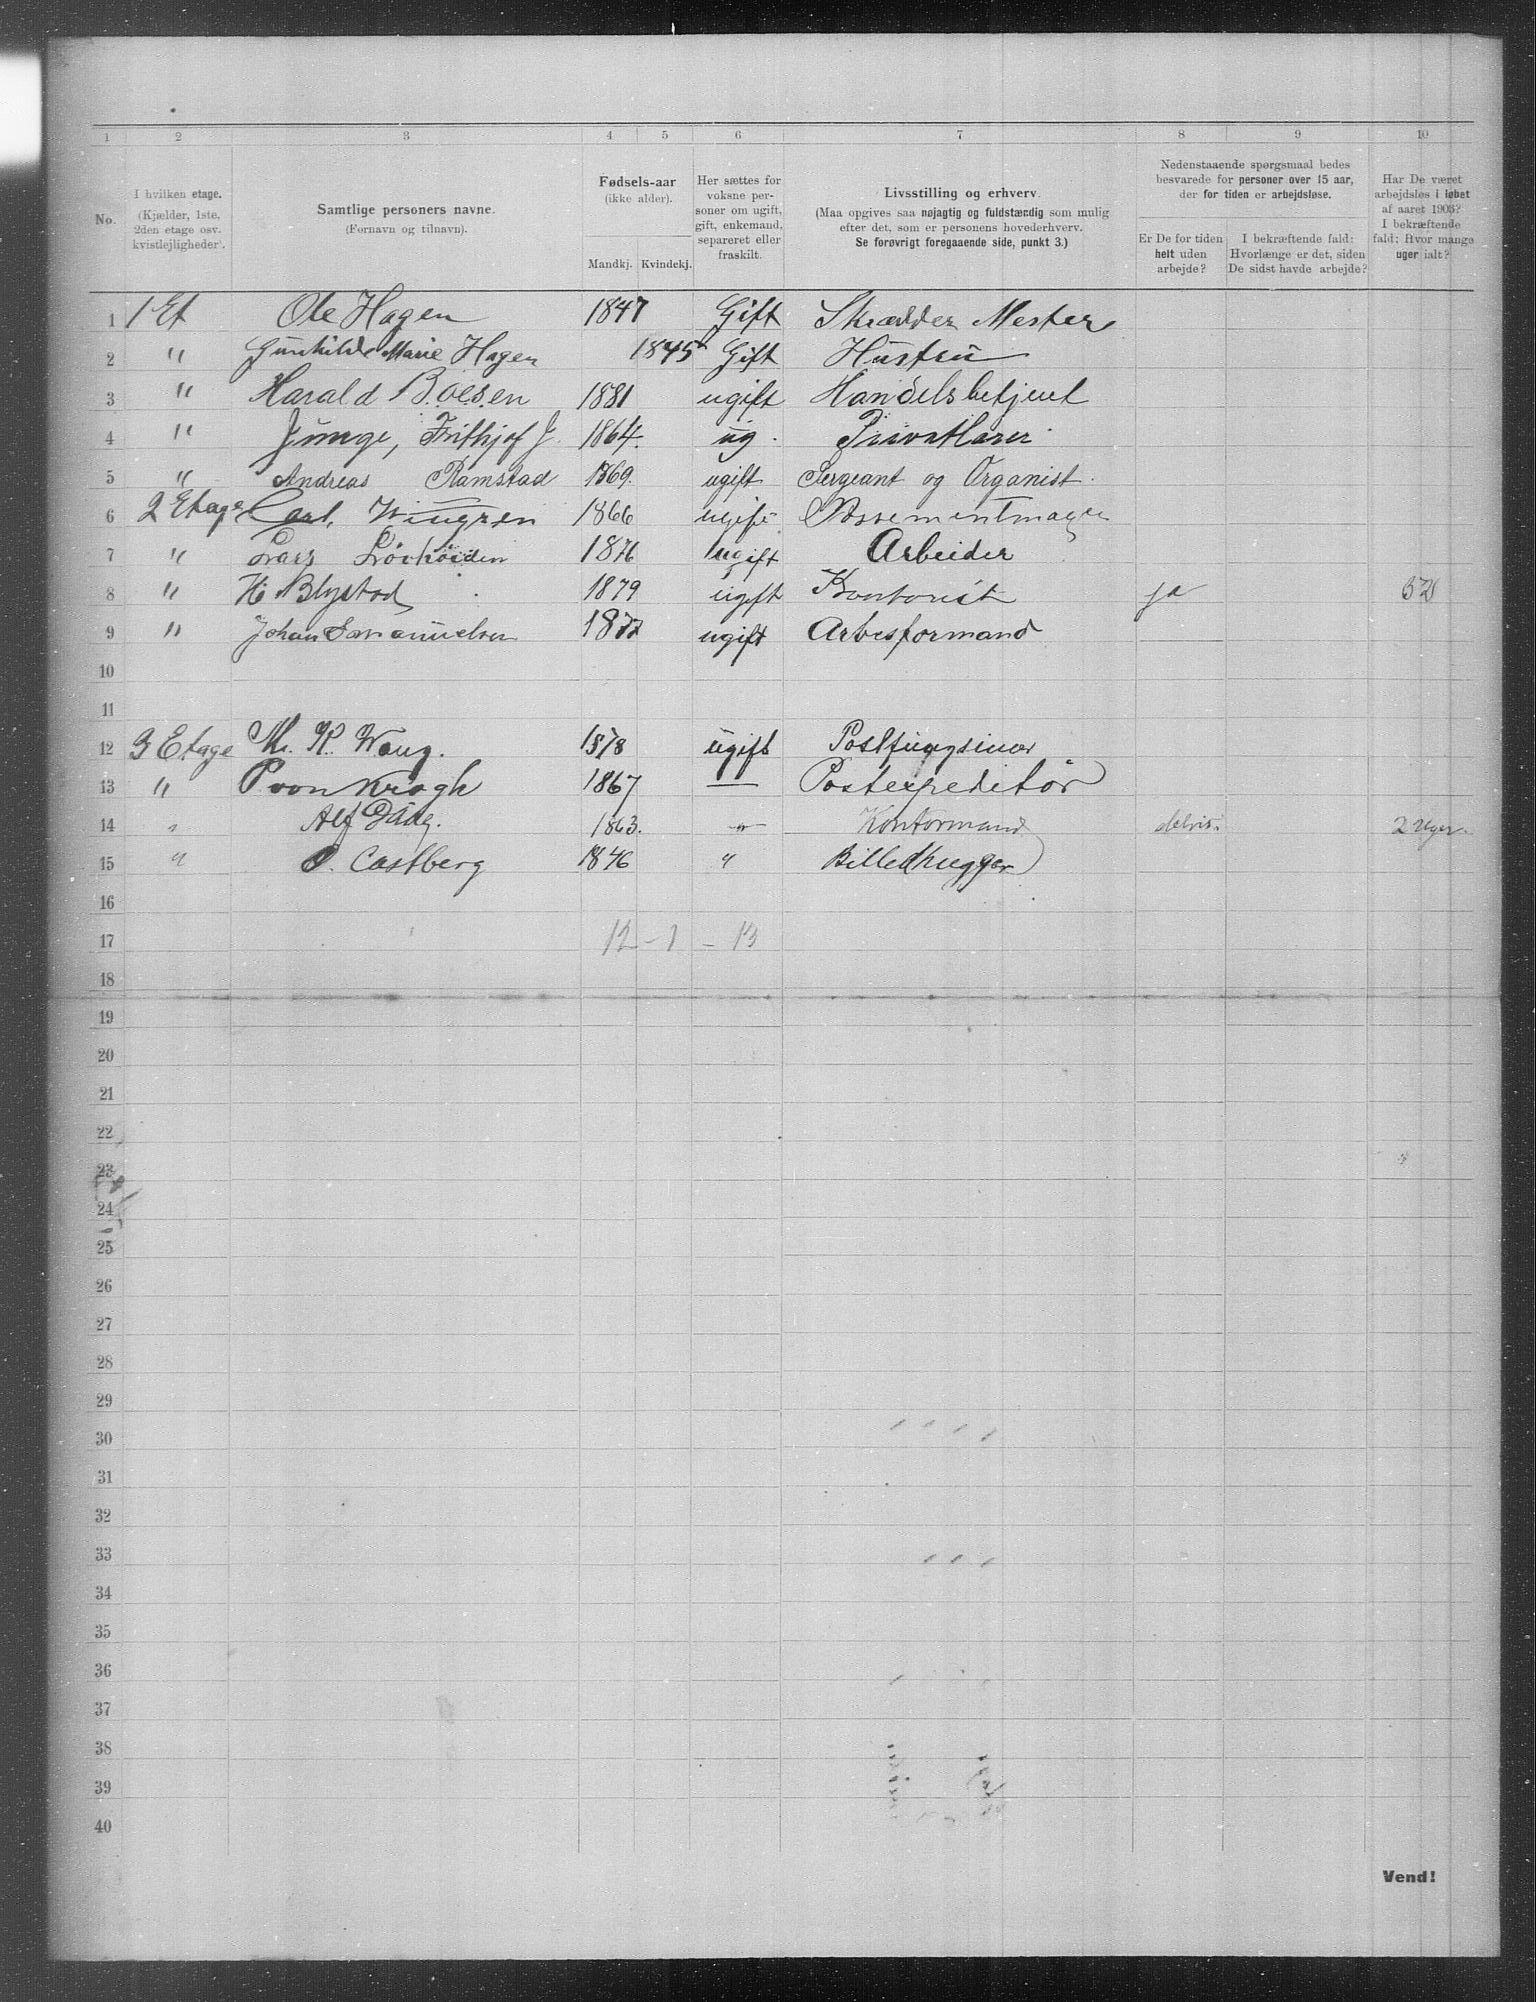 1 2 3 4 5 6 7 8 9 10
No.
I hvilken etage.
(Kjælder, 1ste, 2den etage osv. kvistlejligheder).
Samtlige personers navne.
(Fornavn og tilnavn).
Fødsels-aar
(ikke alder).
Mandkj. Kvindekj.
Her sættes for voksne personer om ugift, gift, enkemand, separeret eller fraskilt.
Livsstilling og erhverv.
(Maa opgives saa nøjagtig og fuldstændig som mulig efter det, som er personens hovederhverv.
Se forøvrigt foregaaende side, punkt 3.)
Nedenstaaende spørgsmaal bedes besvarede for personer over 15 aar, der for tiden er arbejdsløse.
Er De for tiden helt uden arbejde?
I bekræftende fald: Hvorlænge er det, siden De sidst havde arbejde?
Har De været arbejdsløs i løbet af aaret 1903? I bekræftende fald: Hvor mange uger ialt?
1 1 Et Ole Hagen 1847 Gift Skrædder Mester
2 " Gunhilde Marie Hagen 1845 Gift Hustru
3 " Harald Boesen 1881 ugift Handelsbetjent
4 " Junge, Frithjof J. 1864. ug. Privatlærer
5 " Andreas Ramstad 1869. ugift Sergeant og Organist.
6 2 Etage Carl Wingren 1866 ugift
7 " Lars 1876 ugift Arbeider
8 " H. Blystad 1879 ugift Kontorist ja 52
9 " Johan Samuelsen 1877 ugift Arbesformand
10
11
12 3 Etage K. Wang. 1878 ugift
13 " P von Krogh 1867 — Postexpeditør
14 " Alf Daae. 1863. " Kontormand delvis. 2 Uger.
15 " O. Castberg 1846 " Billedhugger
16
17 12 - 1 - 13
18
19
20
21
22
23
24
25
26
27
28
29
30
31
32
33
34
35
36
37
38
39
40
Vend!